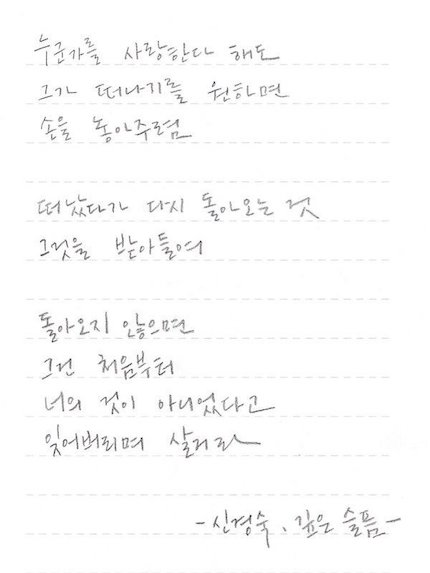 누군가를 사랑한다 해도
그가 떠나기를 원하면
손을 놓아주렴
떠났다가 다시 돌아오는 것
그것을 받아들여
돌아오지 않으면
그건 처음부터
너의 것이 아니었다고
잊어버리며 살거라
-신경숙, 깊은 슬픔-